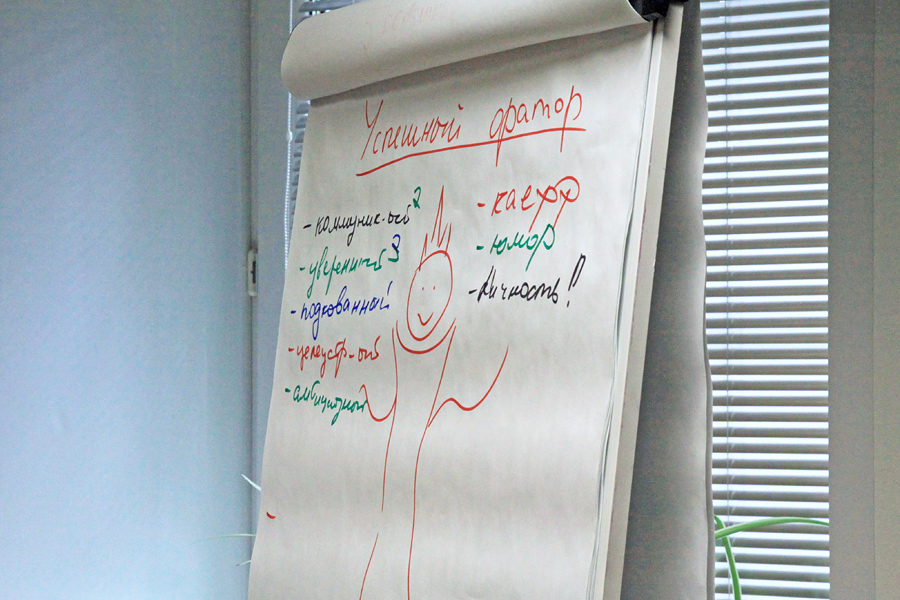 Успешный оратор
- коммуник-ый 2
- уверенный 3
- подкованный
- целеустр-ый
- амбициозный
- юмор
- личность!